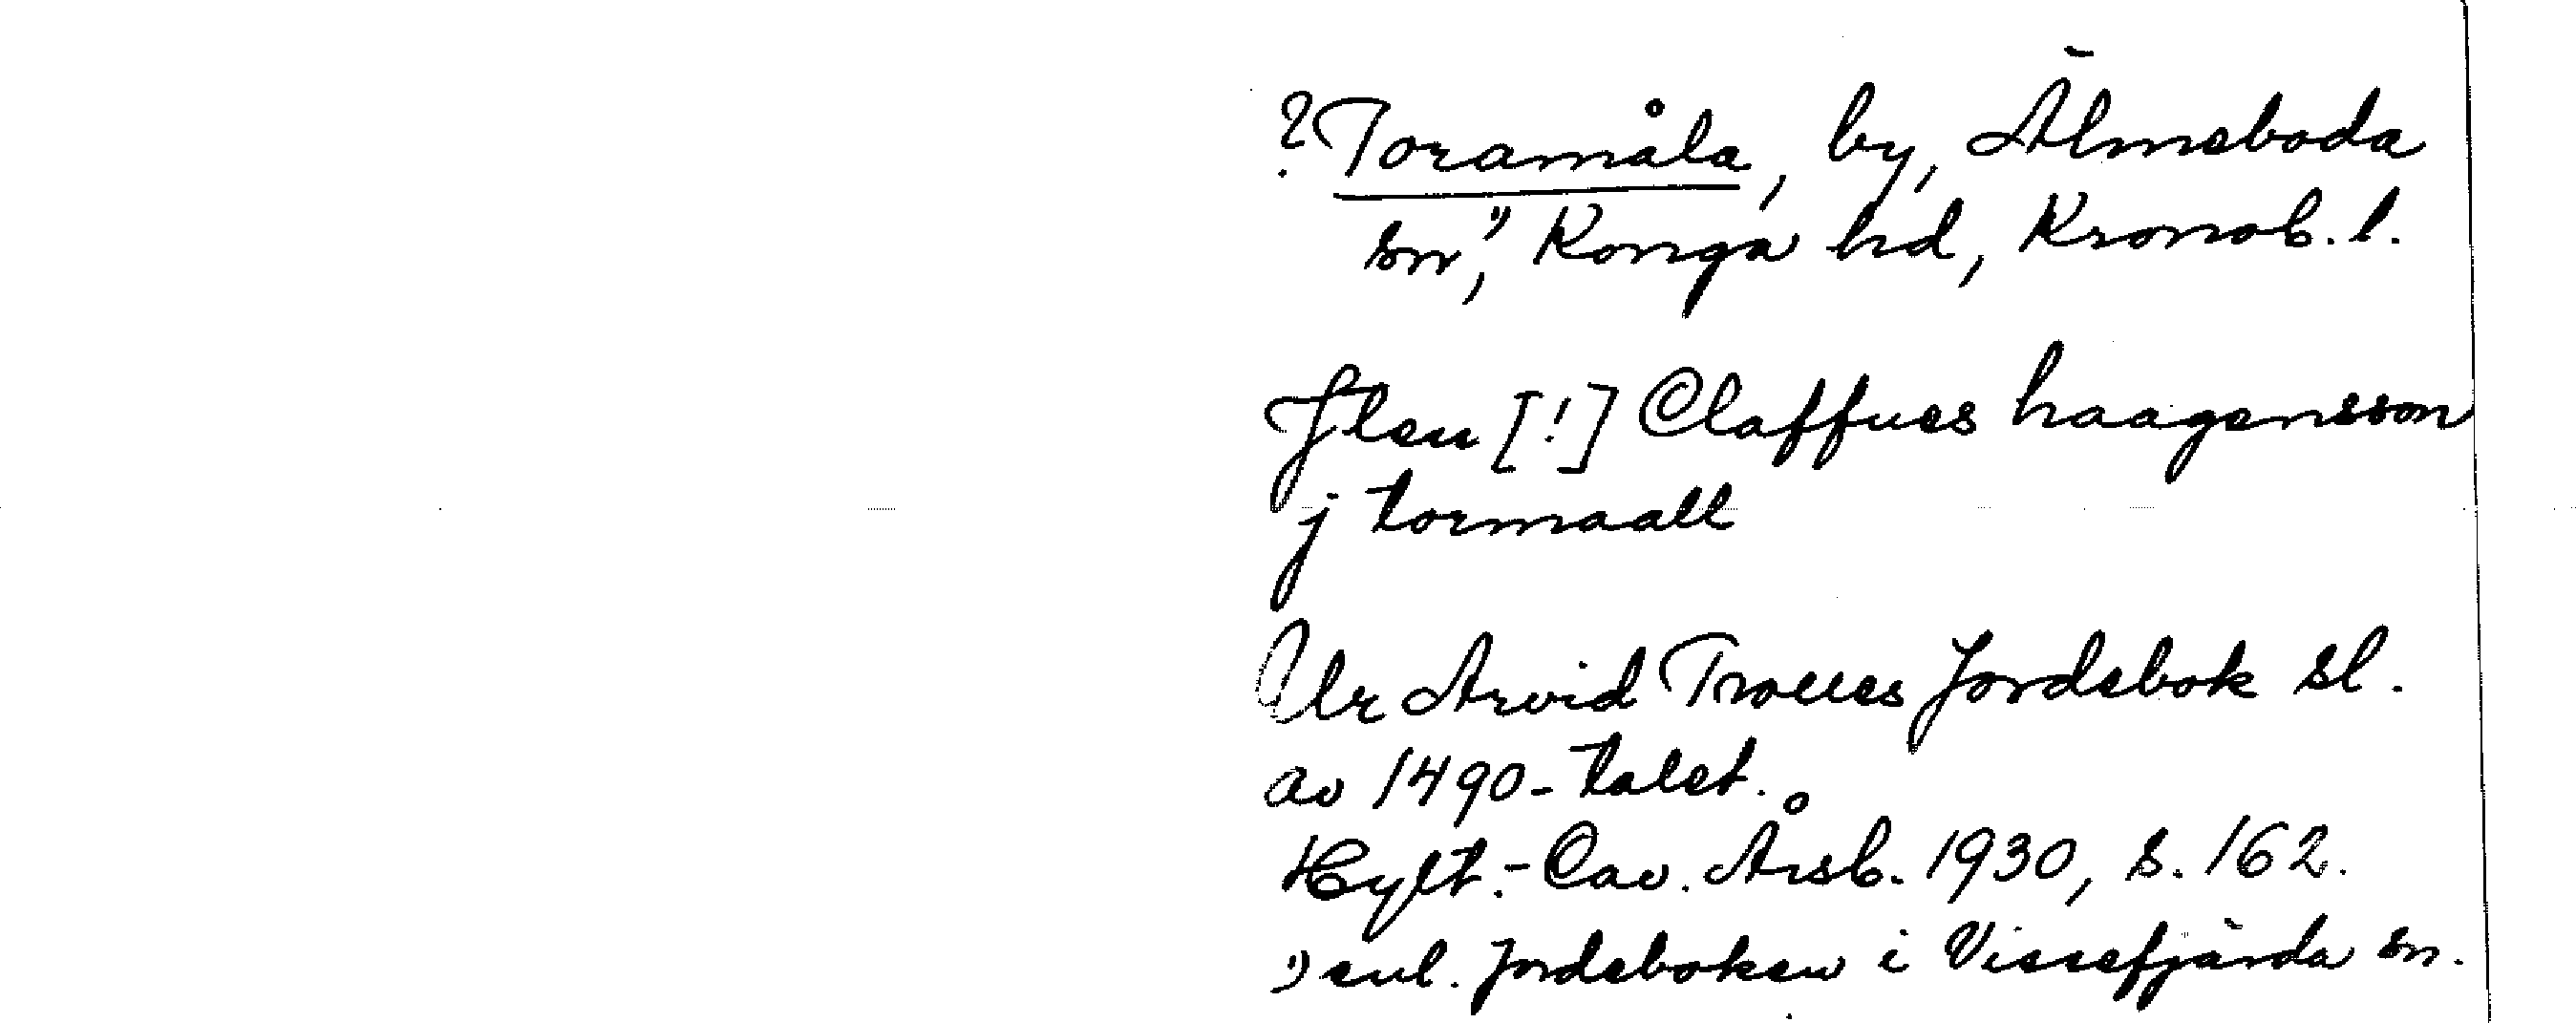 ? Toramåla, by, Älmeboda
sn,¹⁾ Konga hd, Kronob. l.
Jlen [!] Claffues haagensson
j tormaall
Ur Arvid Trolles Jordebok sl.
av 1490-talet.
Hylt.-Cav. Årsb. 1930, s. 162.
¹⁾ enl. Jordeboken i Vissefjärda sn.